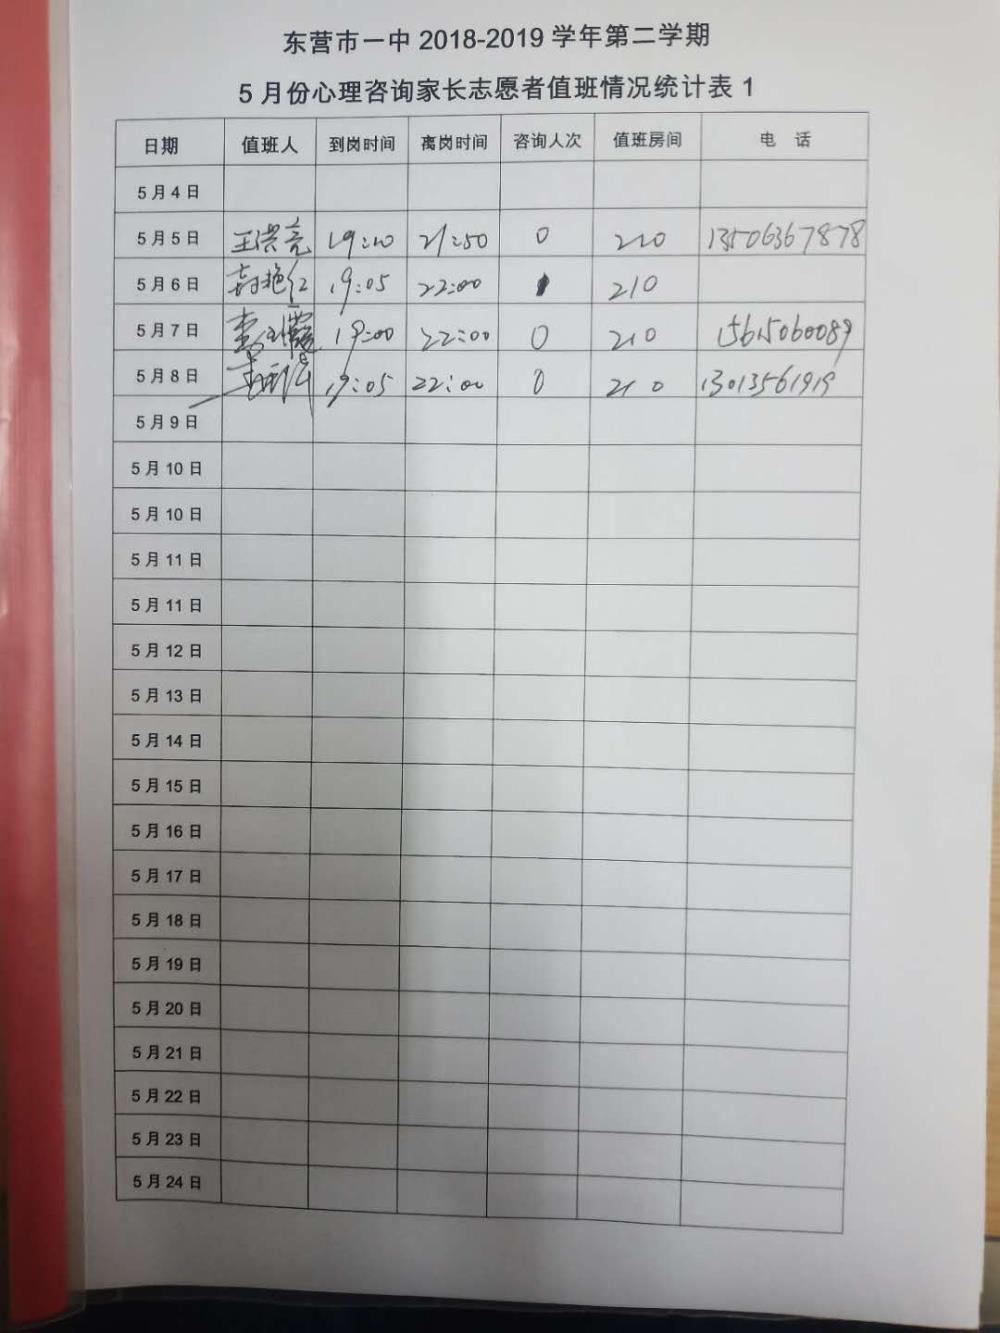 东营市一中 2018-2019 学年第二学期
5 月份心理咨询家长志愿者值班情况统计表 1
日期 值班人 到岗时间 离岗时间 咨询人次 值班房间 电 话
5 月 4 日
5 月 5 日 王洪亮 19:10 21:50 0 210 13506367878
5 月 6 日 艳红 19:05 22:00 210
5 月 7 日 19:00 22:00 0 210 15615060089
5 月 8 日 19:05 22:00 0 210 13013561919
5 月 9 日
5 月 10 日
5 月 10 日
5 月 11 日
5 月 11 日
5 月 12 日
5 月 13 日
5 月 14 日
5 月 15 日
5 月 16 日
5 月 17 日
5 月 18 日
5 月 19 日
5 月 20 日
5 月 21 日
5 月 22 日
5 月 23 日
5 月 24 日